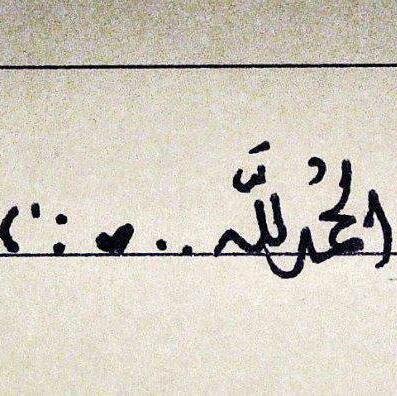 الحمدُ للَّه .. ♥ :")